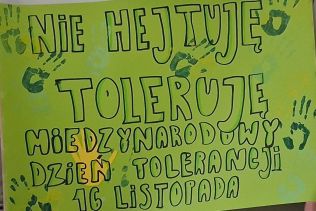 NIE HEJTUJĘ
TOLERUJĘ
MIĘDZYNARODOWY
DZIEŃ TOLERANCJI
16 LISTOPADA